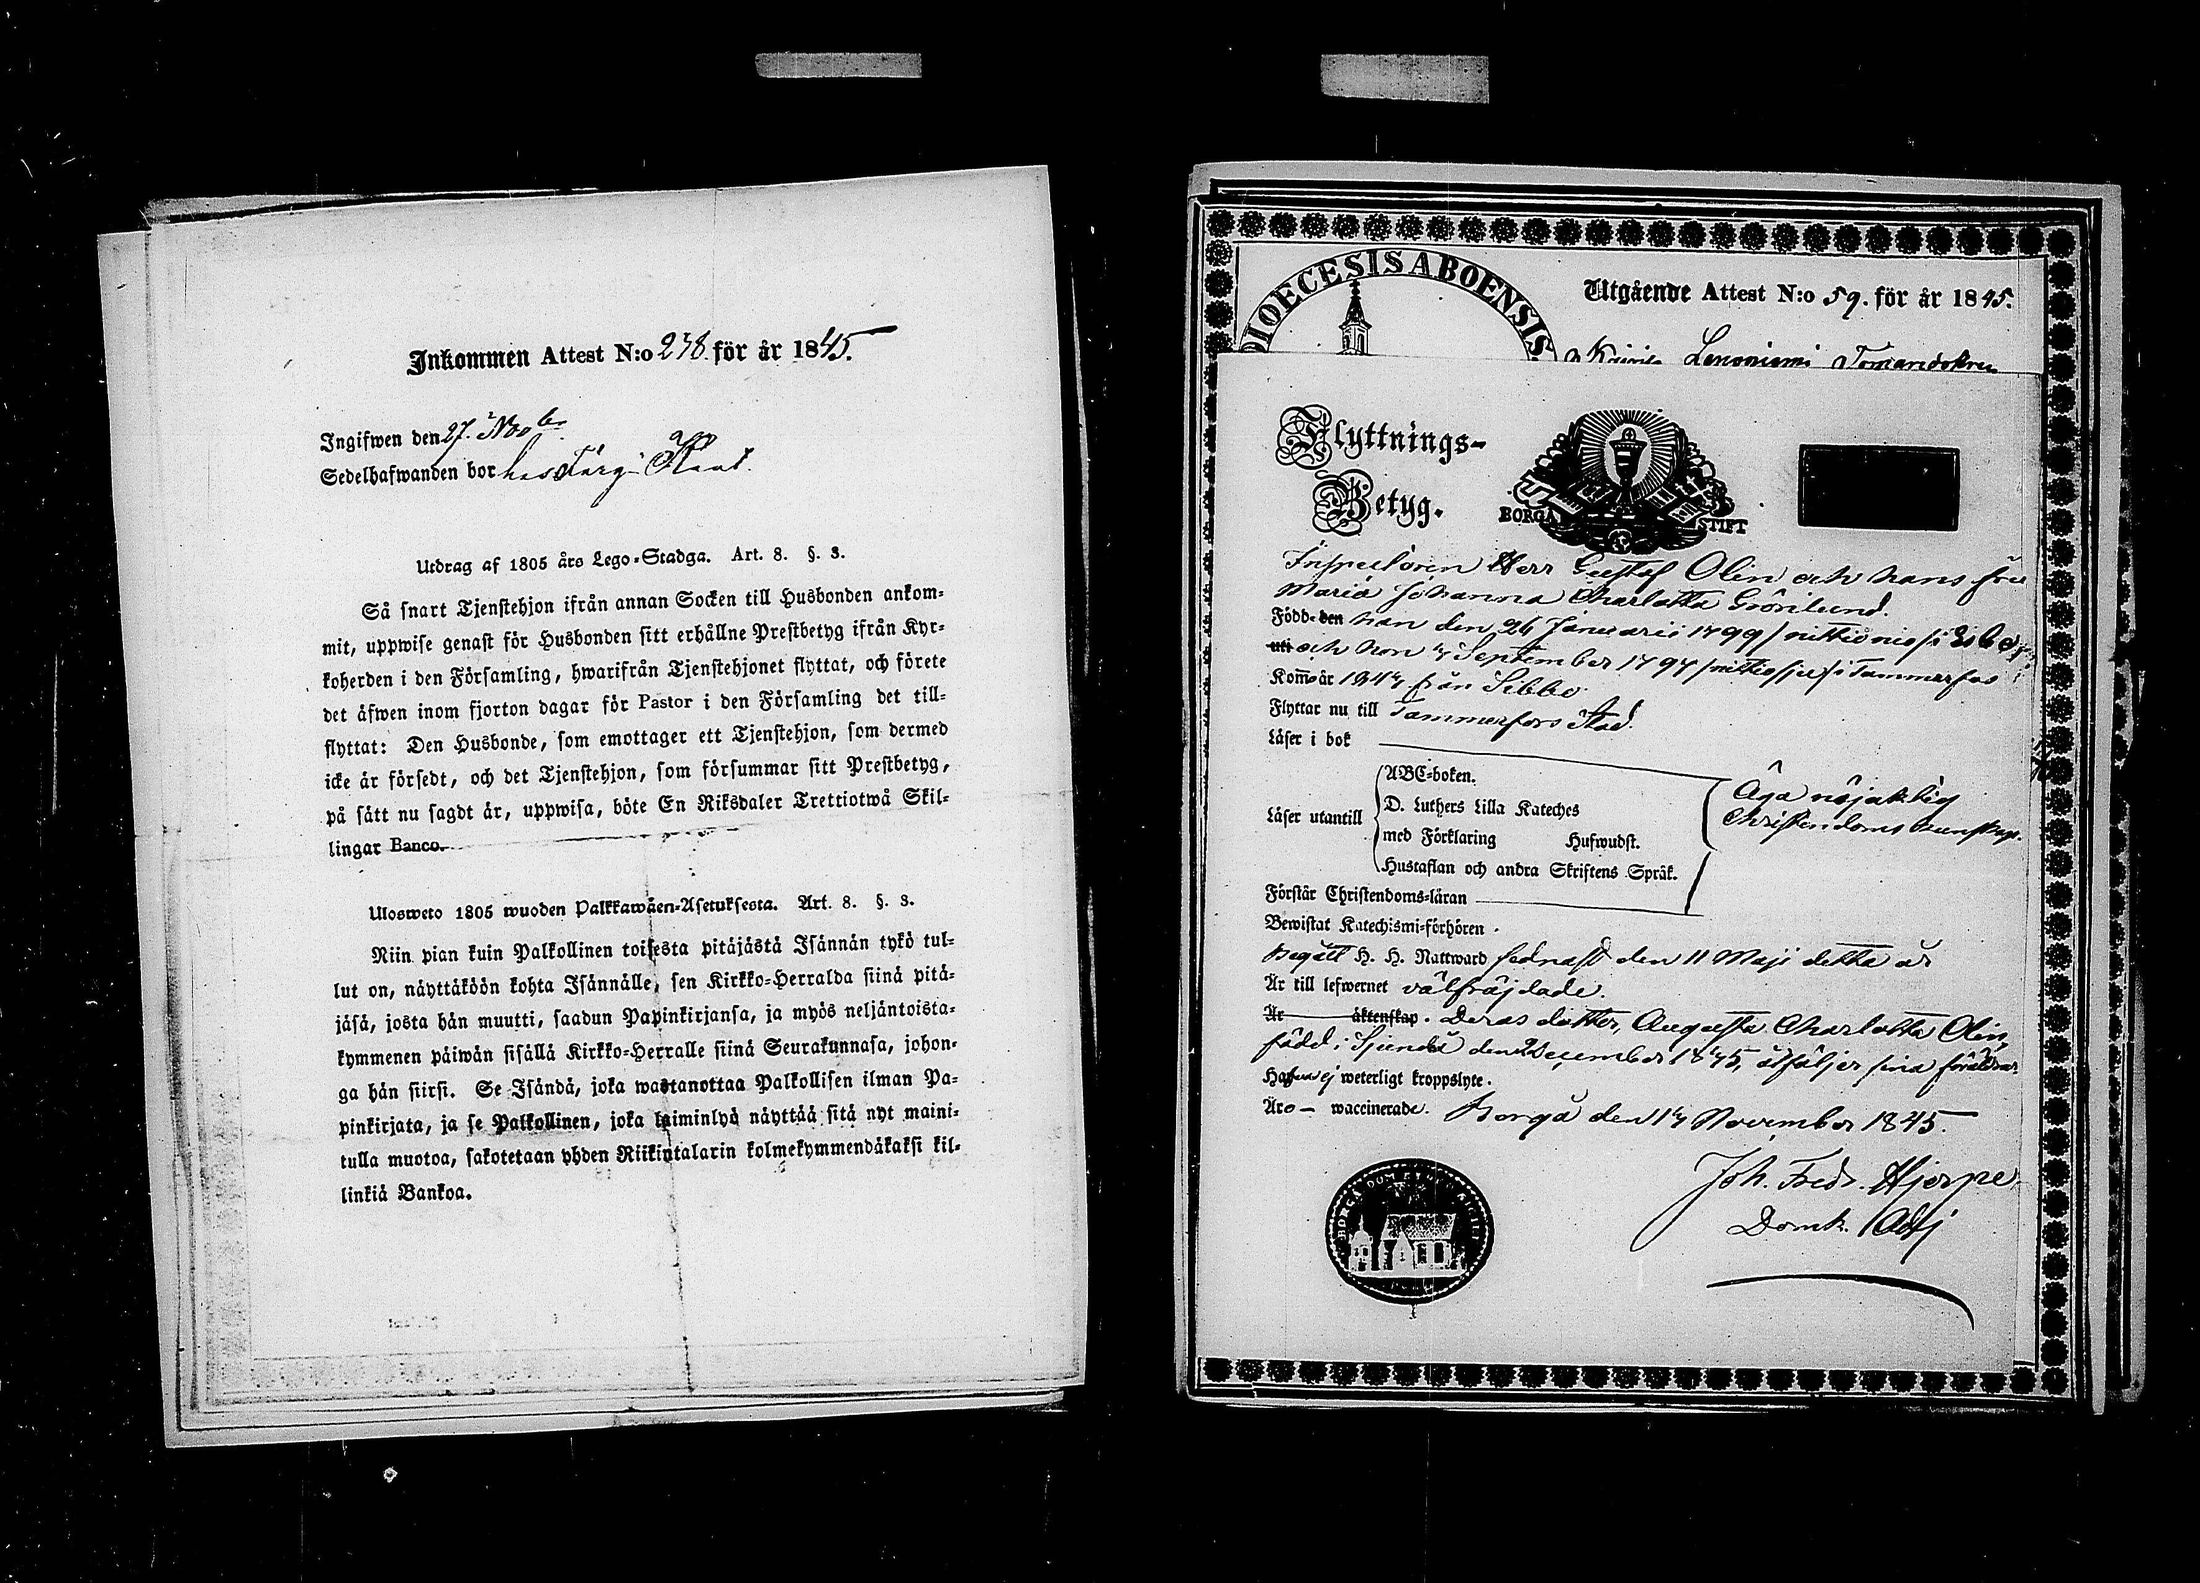 Inkommen Attest N:o 238. för år 1845.
Ingifwen den 27. Novber
Sedelhafwanden bor hos Färg
Utdrag af 1805 års Lego-Stadga. Art. 8. §. 3.
Så snart Tjenstehjon ifrån annan Socken till Husbonden ankom-
mit, uppwise genast för Husbonden sitt erhållne Prestbetyg ifrån Kyr-
koherden i den Församling, hwarifrån Tjenstehjonet flyttat, och förete
det äfwen inom fjorton dagar för Pastor i den Församling det till-
flyttat: Den Husbonde, som emottager ett Tjenstehjon, som dermed
icke är försedt, och det Tjenstehjon, som försummar sitt Prestbetyg,
på sätt nu sagdt är, uppwisa, böte En Riksdaler Trettiotwå Skil-
lingar Banco.
Ulosweto 1805 wuoden Palkkawäen-Asetuksesta. Art. 8. §. 3.
Niin pian kuin Palkollinen toisesta pitäjästä Isännän tykö tul-
lut on, näyttäköön kohta Isännälle, sen Kirkko-Herralda siinä pitä-
jäsä, josta hän muutti, saadun Papinkirjansa, ja myös neljäntoista-
kymmenen päiwän sisällä Kirkko-Herralle siinä Seurakunnasa, johon-
ga hän siirsi. Se Isändä, joka wastanottaa Palkollisen ilman Pa-
pinkirjata, ja se Palkollinen, joka laiminlyö näyttää sitä nyt maini-
tulla muotoa, sakotetaan yhden Riikintalarin kolmekymmendäkaksi kil-
linkiä Bankoa.
DIOECESIS ABOENSIS
Utgående Attest N:o 59. för år 1845.
Flyttnings-
Betyg.
BORGÅ STIFT
Inspectoren Herr Gustaf Olin och hans fru
Maria Johanna Charlotta Grönlund.
Född den han den 26 Januarii 1799 / nittionio / i Sibbo
uti och hon 7 September 1797 / nittiosju / i Tammerfors
Kom̄o år 1844 från Sibbo
Flyttar nu till Tammerfors Stad.
Läser i bok
Läser utantill
ABC-boken.
D. Luthers Lilla Kateches
med Förklaring Hufwudst.
Hustaflan och andra Skriftens Språk.
Äga nöjaktig
Christendoms kunskap.
Förstår Christendoms-läran
Bewistat Katechismi-förhören.
Begått H. H. Nattward sednast den 11 Maji detta år
Är till lefwernet välfräjdade.
Är äktenskap. Deras dotter, Augusta Charlotta Olin,
född i Sjundeå den 2 December 1845, åtföljer sina föräldrar
Hafwa ej weterligt kroppslyte.
Äro – waccinerade. Borgå den 17 November 1845.
Joh. Fredr. Hjerpe
Domk. Adj